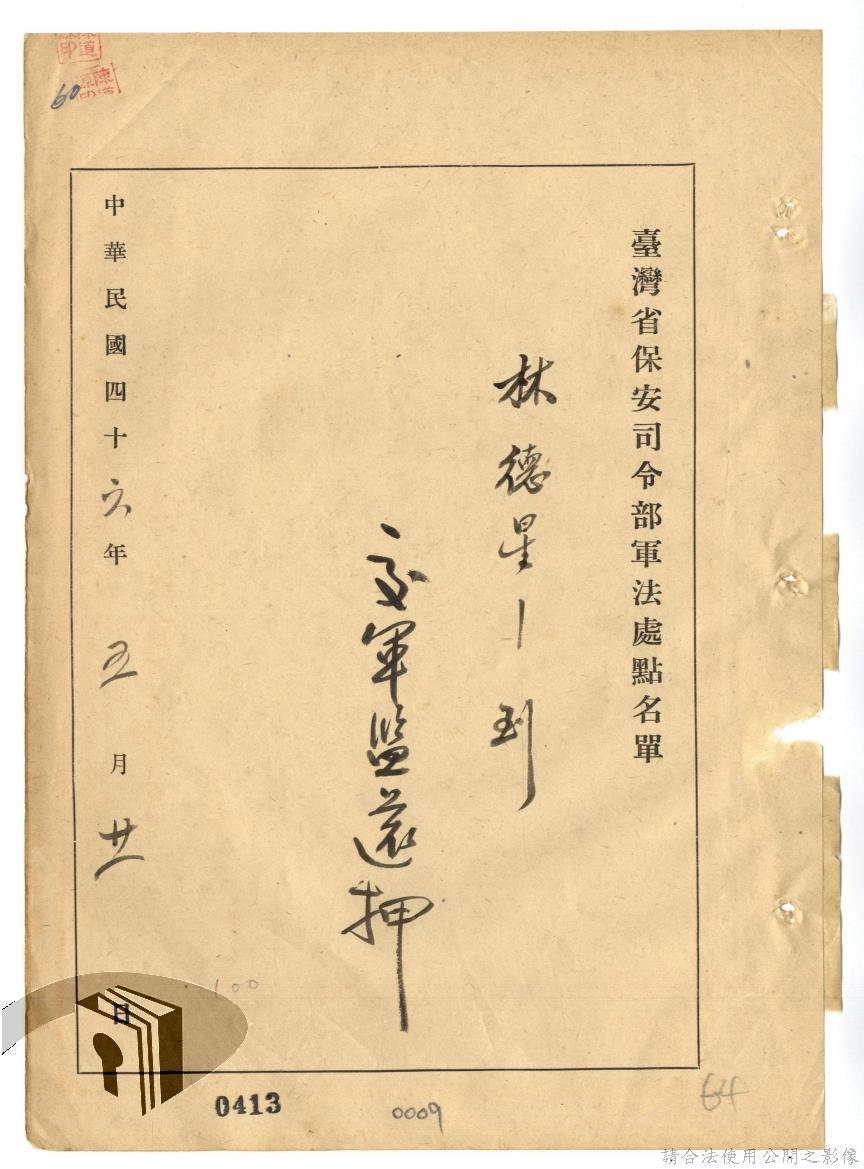 臺灣省保安司令部軍法處點名單
林德星 到
交軍監還押
中華民國四十六年五月廿一日
60
100
0413
0009
64
請合法使用公開之影像